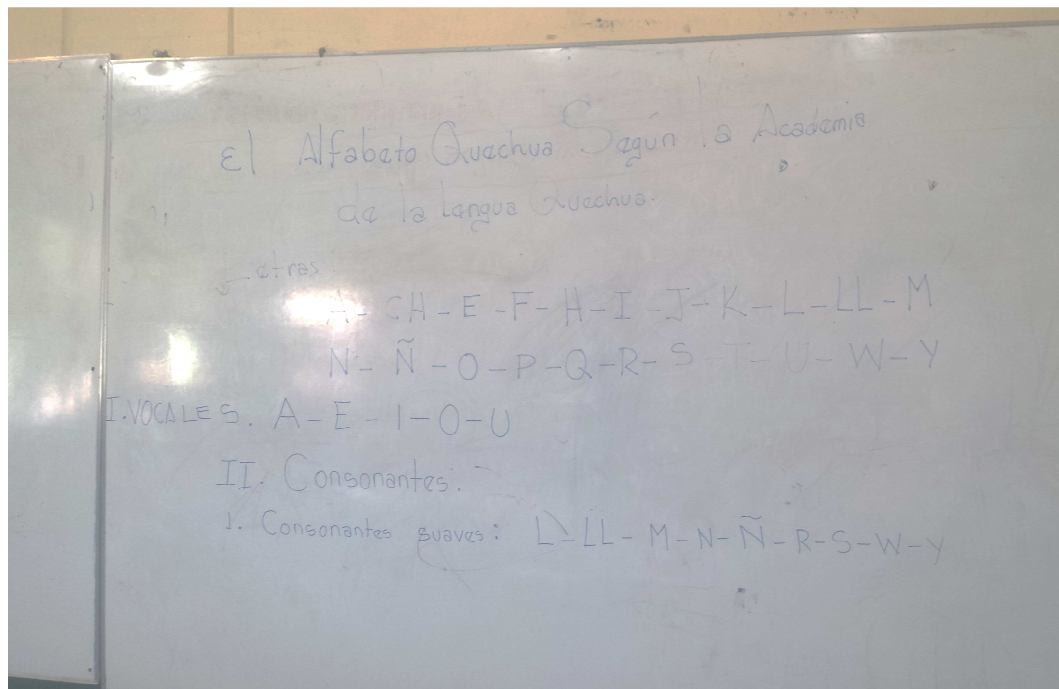 El Alfabeto Quechua Según la Academia
de la Lengua Quechua.
Letras
A - CH - E - F - H - I - J - K - L - LL - M
N - Ñ - O - P - Q - R - S - T - U - W - Y
I. VOCALES. A - E - I - O - U
II. Consonantes:
1. Consonantes suaves: L - LL - M - N - Ñ - R - S - W - Y